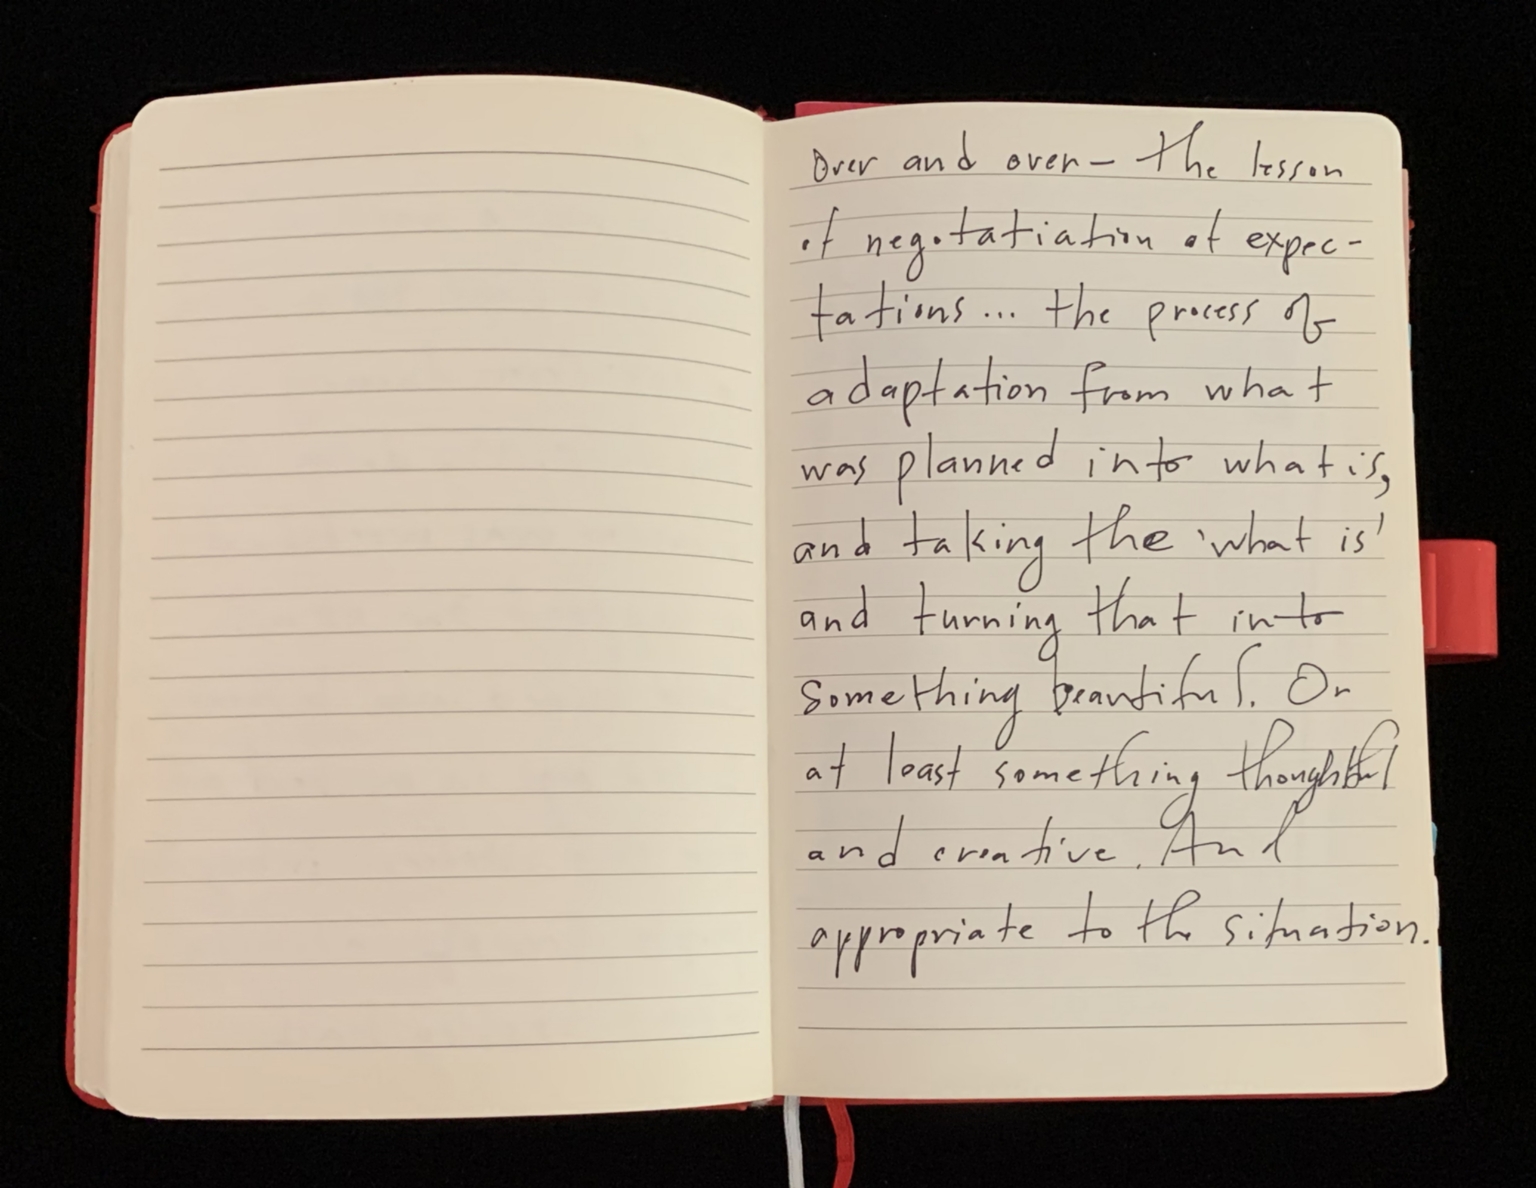 Over and over – the lesson
of negotatiation of expec-
tations... the process of
adaptation from what
was planned into what is,
and taking the 'what is'
and turning that into
something beautiful. Or
at least something thoughtful
and creative. And
appropriate to the situation.